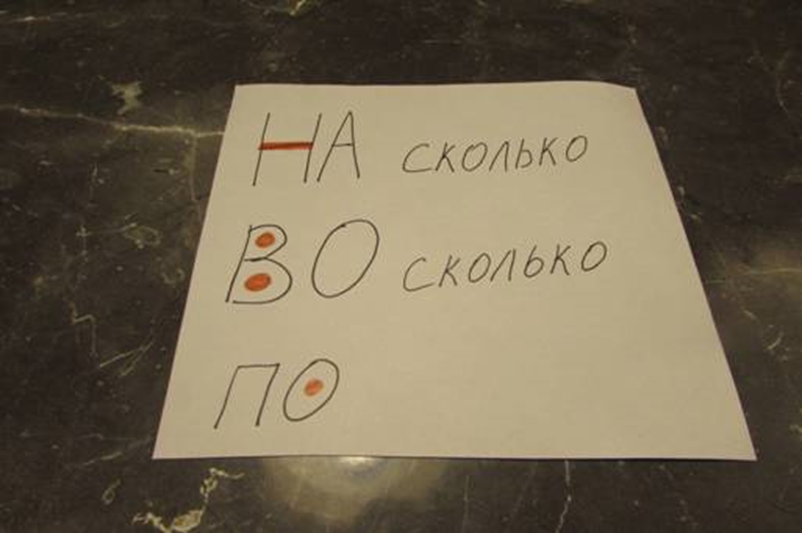 НА сколько
ВО сколько
ПО